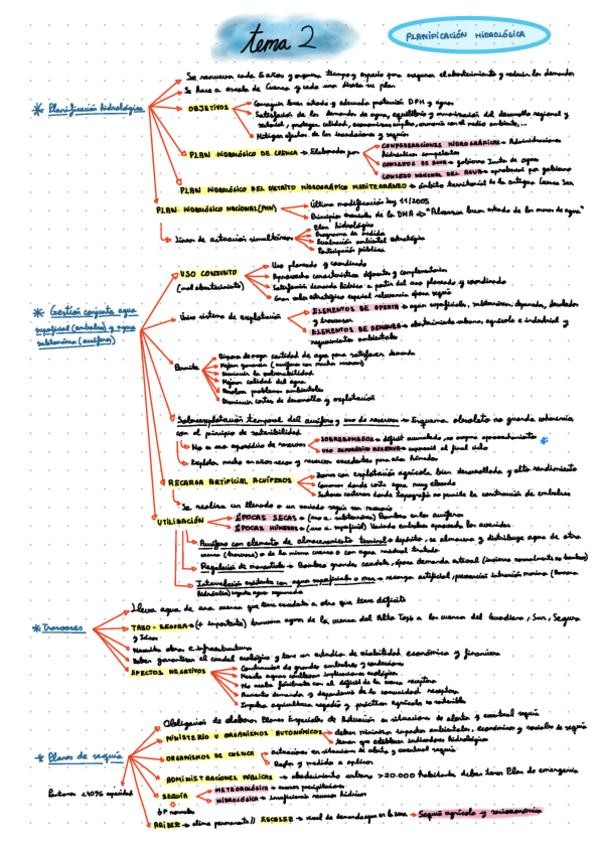 tema 2
PLANIFICACIÓN HIDROLÓGICA
Se renueva cada 6 años y organiza tiempo y espacio para asegurar el abastecimiento y reducir las demandas
Se hace a escala de Cuenca y cada una diseña su plan
* Planificación hidrológica
OBJETIVOS
Conseguir buen estado y adecuada protección DPH y aguas
Satisfacción de las demandas de agua, equilibrio y armonización del desarrollo regional y
sectorial, proteger calidad, economizar empleo, armonía con el medio ambiente,...
Mitigar efectos de las inundaciones y sequías
PLAN HIDROLÓGICO DE CUENCA → Elaborados por
CONFEDERACIONES HIDROGRÁFICAS → Administraciones
hidráulicas competentes
CONSEJOS DE AGUA → gobierno Junta de agua
CONSEJO NACIONAL DEL AGUA → aprobados por gobierno
PLAN HIDROLÓGICO DEL DISTRITO HIDROGRÁFICO MEDITERRÁNEO → ámbito territorial de la antigua Cuenca Sur
PLAN HIDROLÓGICO NACIONAL (PHN)
Última modificación ley 11/2005
Principios marcados de la DMA → "Alcanzar buen estado de las masas de agua"
Líneas de actuación simultáneas
Plan hidrológico
Programa de medida
Evaluación ambiental estratégica
Participación pública
* Gestión conjunta agua
superficial (embalses) y agua
subterránea (acuífero)
USO CONJUNTO
(mal abastecimiento)
Uso planeado y coordinado
Aprovecha características diferentes y complementarias
Satisfacción demanda hídrica a partir del uso planeado y coordinado
Gran valor estratégico especial relevancia época sequía
Único sistema de explotación
ELEMENTOS DE OFERTA → agua superficiales, subterráneas, depuradas, desaladas
y trasvases
ELEMENTOS DE DEMANDA → abastecimiento urbano, agrícola e industrial y
requerimientos ambientales
Permite
Disponer de mayor cantidad de agua para satisfacer demanda
Mejor garantía
Disminuir la vulnerabilidad
Mejorar calidad del agua
Resolver problemas ambientales
Disminuir costes de desarrollo y explotación
Sobreexplotación temporal del acuífero y uso de reservas → Esquema obsoleto no guarda coherencia
con el principio de sostenibilidad
No a uso esporádico de reservas
SOBREBOMBEOS → déficit acumulado, no asegura aprovechamiento
USO ESPORÁDICO RESERVA → superavit al final ciclo
Explotar mucho en años secos y reservar excedentes para años húmedos
RECARGA ARTIFICIAL ACUÍFEROS
Zonas con explotación agrícola bien desarrollada y alto rendimiento
Comunes donde coste agua muy elevado
Sectores costeros donde topografía no permite la construcción de embalses
Se realiza un llenado o un vaciado según sea necesario
UTILIZACIÓN
ÉPOCAS SECAS → (uso a. subterránea) Bombeo en los acuíferos
ÉPOCAS HÚMEDAS → (uso a. superficial) Vaciando embalses aprovechar las avenidas.
Acuífero con elemento de almacenamiento terminal → depósito, se almacena y distribuye agua de otra
cuenca (trasvases) o de la misma cuenca o con agua residual tratada
Regulación de manantiales → Bombeo grandes caudales, época demanda estival (invierno normalmente no bombeo)
Interrelación existente con agua superficiales o mar → recarga artificial, prevención intrusión marina (barrera
hidráulica) inyecta agua regenerada
* Trasvases
Lleva agua de una cuenca que tiene excedente a otra que tiene déficit
TAJO-SEGURA → (+ importante) trasvase agua de la cuenca del Alto Tajo a las cuencas del Guadiana, Sur, Segura
y Júcar
Necesita obras e infraestructura
Deben garantizar el caudal ecológico y tener un estudio de viabilidad económica y financiera
EFECTOS NEGATIVOS
Construcción de grandes embalses y conducciones
Mezcla aguas conlleva implicaciones ecológicas
No acaba fácilmente con el déficit de la cuenca receptora
Aumenta demanda y dependencia de la comunidad receptora
Impulsa agricultura regadío y prácticas agrícolas no sostenibles
* Planes de sequía
Obligación de elaborar Planes Especiales de Actuación en situaciones de alerta y eventual sequía
MINISTERIO U ORGANISMOS AUTONÓMICOS
deben minimizar impactos ambientales, económicos y sociales de sequía
tienen que establecer indicadores hidrológicos
ORGANISMOS DE CUENCA
actuaciones en situación de alerta y eventual sequía
Reglas y medidas a aplicar
ADMINISTRACIONES PÚBLICAS → abastecimiento urbano >20.000 habitantes deben tener Plan de emergencia
SEQUÍA
METEOROLÓGICA → escasas precipitaciones
HIDROLÓGICA → insuficiencia recursos hídricos
Pantanos <40% capacidad
↓P normales
ARIDEZ → clima permanente // ESCASEZ → nivel de demanda agua en la zona → Sequía agrícola y socioeconómica